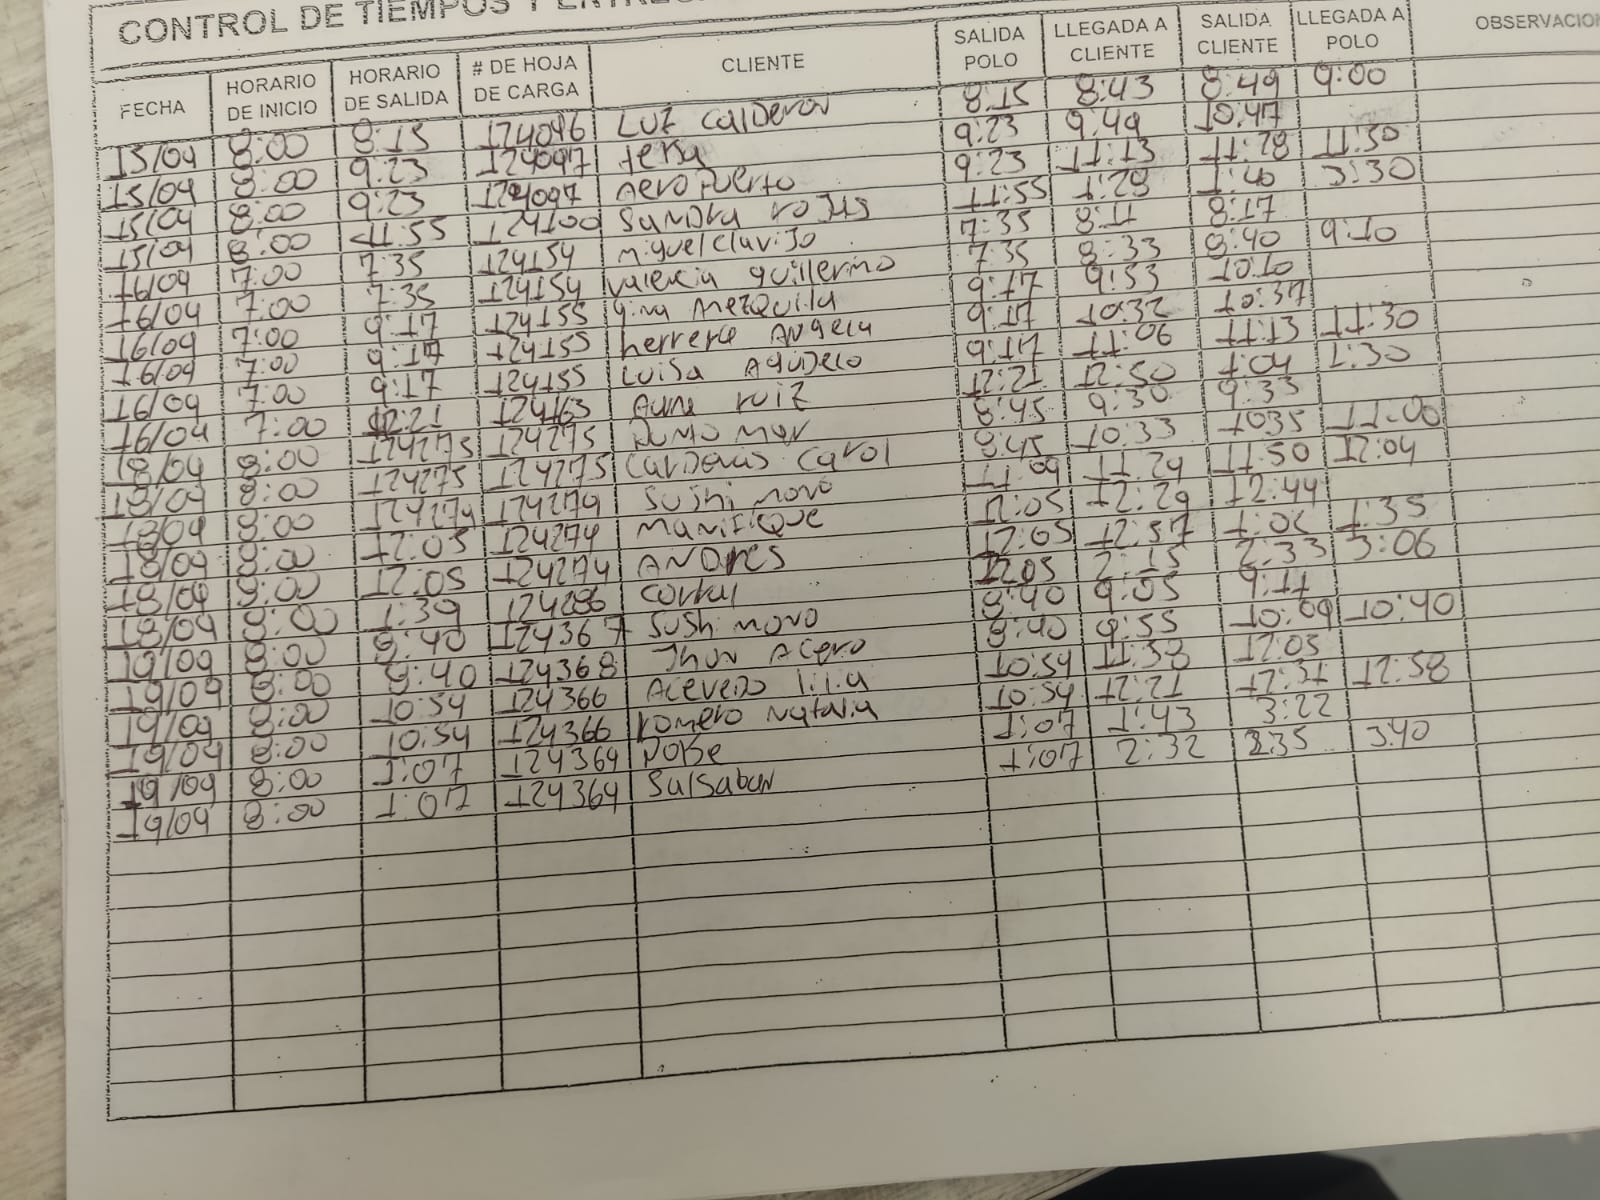 CONTROL DE TIEMPOS Y ENTREG
FECHA HORARIO DE INICIO HORARIO DE SALIDA # DE HOJA DE CARGA CLIENTE SALIDA POLO LLEGADA A CLIENTE SALIDA CLIENTE LLEGADA A POLO OBSERVACION
15/04 8:00 8:15 124096 LUZ CalDeron 8:15 8:43 8:49 9:00
15/04 8:00 9:23 124097 9:23 9:49 10:47
15/04 8:00 9:23 124097 AeroPuerto 9:23 11:13 11:28 11:50
15/04 8:00 11:55 124100 Sandra rojas 11:55 1:29 1:40 3:30
16/04 7:00 7:35 124154 miguel clavijo 7:35 8:11 8:17
16/04 7:00 7:35 124154 valencia guillermo 7:35 8:33 8:40 9:10
16/04 7:00 9:17 124155 gina Mezquita 9:17 9:53 10:10
16/04 7:00 9:17 124155 herrera Angela 9:17 10:32 10:37
16/04 7:00 9:17 124155 Luisa Agudelo 9:17 11:06 11:13 11:30
16/04 7:00 12:21 124163 ruiz 12:21 12:50 1:04 1:30
18/04 8:00 124275 124275 Punto mar 8:45 9:30 9:33
18/04 8:00 124275 124275 CarDenas Carol 8:45 10:33 1035 11:00
18/04 8:00 124274 124274 Sushi novo 11:09 11:29 11:50 12:04
18/04 8:00 12:05 124274 Manifique 12:05 12:29 12:44
18/04 8:00 12:05 124274 ANDres 12:05 12:57 1:02 1:35
18/04 8:00 1:39 124286 Corral 1205 2:15 2:33 3:06
19/04 8:00 8:40 124367 Sushi novo 8:40 9:05 9:17
19/04 8:00 8:40 124368 Jhon Acero 8:40 9:55 10:09 10:40
19/04 8:00 10:54 124366 Acevedo lilia 10:54 11:58 12:03
19/04 8:00 10:54 124366 romero Natalia 10:54 12:21 12:31 12:58
19/04 8:00 1:07 124364 1:07 1:43 3:22
19/04 8:00 1:07 124364 Salsaban 1:07 2:32 335 340